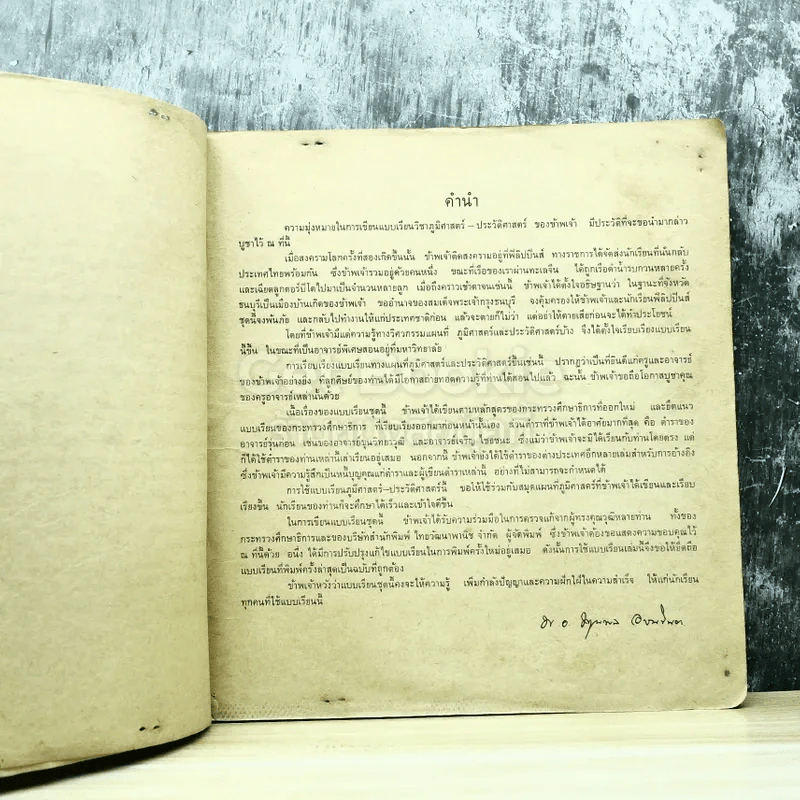 คำนำ
ความมุ่งหมายในการเขียนแบบเรียนวิชาภูมิศาสตร์ – ประวัติศาสตร์ ของข้าพเจ้า มีประวัติที่จะขอนำมากล่าว
บูชาไว้ ณ ที่นี้
เมื่อสงครามโลกครั้งที่สองเกิดขึ้นนั้น ข้าพเจ้าติดสงครามอยู่ที่ฟิลิปปินส์ ทางราชการได้จัดส่งนักเรียนที่นั่นกลับ
ประเทศไทยพร้อมกัน ซึ่งข้าพเจ้ารวมอยู่ด้วยคนหนึ่ง ขณะที่เรือของเราผ่านทะเลจีน ได้ถูกเรือดำน้ำรบกวนหลายครั้ง
และเฉียดลูกตอร์ปิโดไปมาเป็นจำนวนหลายลูก เมื่อถึงคราวเข้าตาจนเช่นนี้ ข้าพเจ้าได้ตั้งใจอธิษฐานว่า ในฐานะที่จังหวัด
ธนบุรีเป็นเมืองบ้านเกิดของข้าพเจ้า ขออำนาจของสมเด็จพระเจ้ากรุงธนบุรี จงคุ้มครองให้ข้าพเจ้าและนักเรียนฟิลิปปินส์
ชุดนี้จงพ้นภัย และกลับไปทำงานให้แก่ประเทศชาติก่อน แล้วจะตายก็ไม่ว่า แต่อย่าให้ตายเสียก่อนจะได้ทำประโยชน์
โดยที่ข้าพเจ้ามีแต่ความรู้ทางวิศวกรรมแผนที่ ภูมิศาสตร์และประวัติศาสตร์บ้าง จึงได้ตั้งใจเรียบเรียงแบบเรียน
นี้ขึ้น ในขณะที่เป็นอาจารย์พิเศษสอนอยู่ที่มหาวิทยาลัย
การเรียบเรียงแบบเรียนทางแผนที่ภูมิศาสตร์และประวัติศาสตร์ขึ้นเช่นนี้ ปรากฏว่าเป็นที่ยินดีแก่ครูและอาจารย์
ของข้าพเจ้าอย่างยิ่ง ที่ลูกศิษย์ของท่านได้มีโอกาสถ่ายทอดความรู้ที่ท่านได้สอนไปแล้ว ฉะนั้น ข้าพเจ้าขอถือโอกาสบูชาคุณ
ของครูอาจารย์เหล่านั้นด้วย
เนื้อเรื่องของแบบเรียนชุดนี้ ข้าพเจ้าได้เขียนตามหลักสูตรของกระทรวงศึกษาธิการที่ออกใหม่ และยึดแนว
แบบเรียนของกระทรวงศึกษาธิการ ที่เรียบเรียงออกมาก่อนหน้านั้นเอง ส่วนตำราที่ข้าพเจ้าได้อาศัยมากที่สุด คือ ตำราของ
อาจารย์รุ่นก่อน เช่นของอาจารย์ขุนวิทยาวุฒิ และอาจารย์เจริญ ไชยชนะ ซึ่งแม้ว่าข้าพเจ้าจะมิได้เรียนกับท่านโดยตรง แต่
ก็ได้ใช้ตำราของท่านเหล่านี้เล่าเรียนอยู่เสมอ นอกจากนี้ ข้าพเจ้ายังได้ใช้ตำราของต่างประเทศอีกหลายเล่มสำหรับการอ้างอิง
ซึ่งข้าพเจ้ามีความรู้สึกเป็นหนี้บุญคุณแก่ตำราและผู้เขียนตำราเหล่านี้ อย่างที่ไม่สามารถจะกำหนดได้
การใช้แบบเรียนภูมิศาสตร์–ประวัติศาสตร์นี้ ขอให้ใช้ร่วมกับสมุดแผนที่ภูมิศาสตร์ที่ข้าพเจ้าได้เขียนและเรียบ
เรียงขึ้น นักเรียนของท่านก็จะศึกษาได้เร็วและเข้าใจดีขึ้น
ในการเขียนแบบเรียนชุดนี้ ข้าพเจ้าได้รับความร่วมมือในการตรวจแก้จากผู้ทรงคุณวุฒิหลายท่าน ทั้งของ
กระทรวงศึกษาธิการและของบริษัทสำนักพิมพ์ ไทยวัฒนาพานิช จำกัด ผู้จัดพิมพ์ ซึ่งข้าพเจ้าต้องขอแสดงความขอบคุณไว้
ณ ที่นี้ด้วย อนึ่ง ได้มีการปรับปรุงแก้ไขแบบเรียนในการพิมพ์ครั้งใหม่อยู่เสมอ ดังนั้นการใช้แบบเรียนเล่มนี้จึงขอให้ยึดถือ
แบบเรียนที่พิมพ์ครั้งล่าสุดเป็นฉบับที่ถูกต้อง
ข้าพเจ้าหวังว่าแบบเรียนชุดนี้คงจะให้ความรู้ เพิ่มกำลังปัญญาและความฝักใฝ่ในความสำเร็จ ให้แก่นักเรียน
ทุกคนที่ใช้แบบเรียนนี้